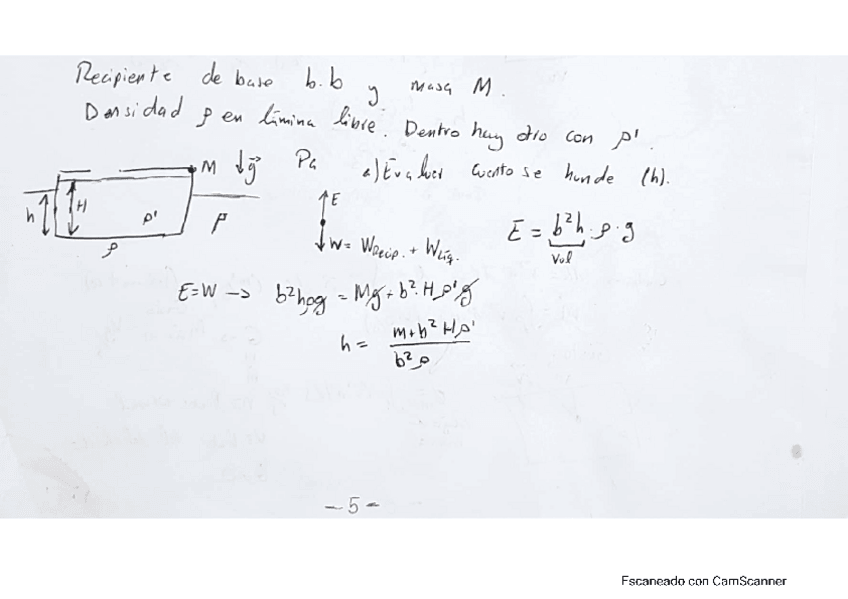 Recipiente de base b.b y masa M.
Densidad ρ en lámina libre. Dentro hay otro con ρ'.
M ↓g⃗ Pa a) Evaluar cuanto se hunde (h).
h H ρ' ρ
ρ
↑E
↓W = W Recip. + W Liq.
E = b²h · ρ · g
Vol
E=W → b²hρg = Mg + b²·Hρ'g
h = m+b²Hρ' / b²ρ
- 5 -
Escaneado con CamScanner